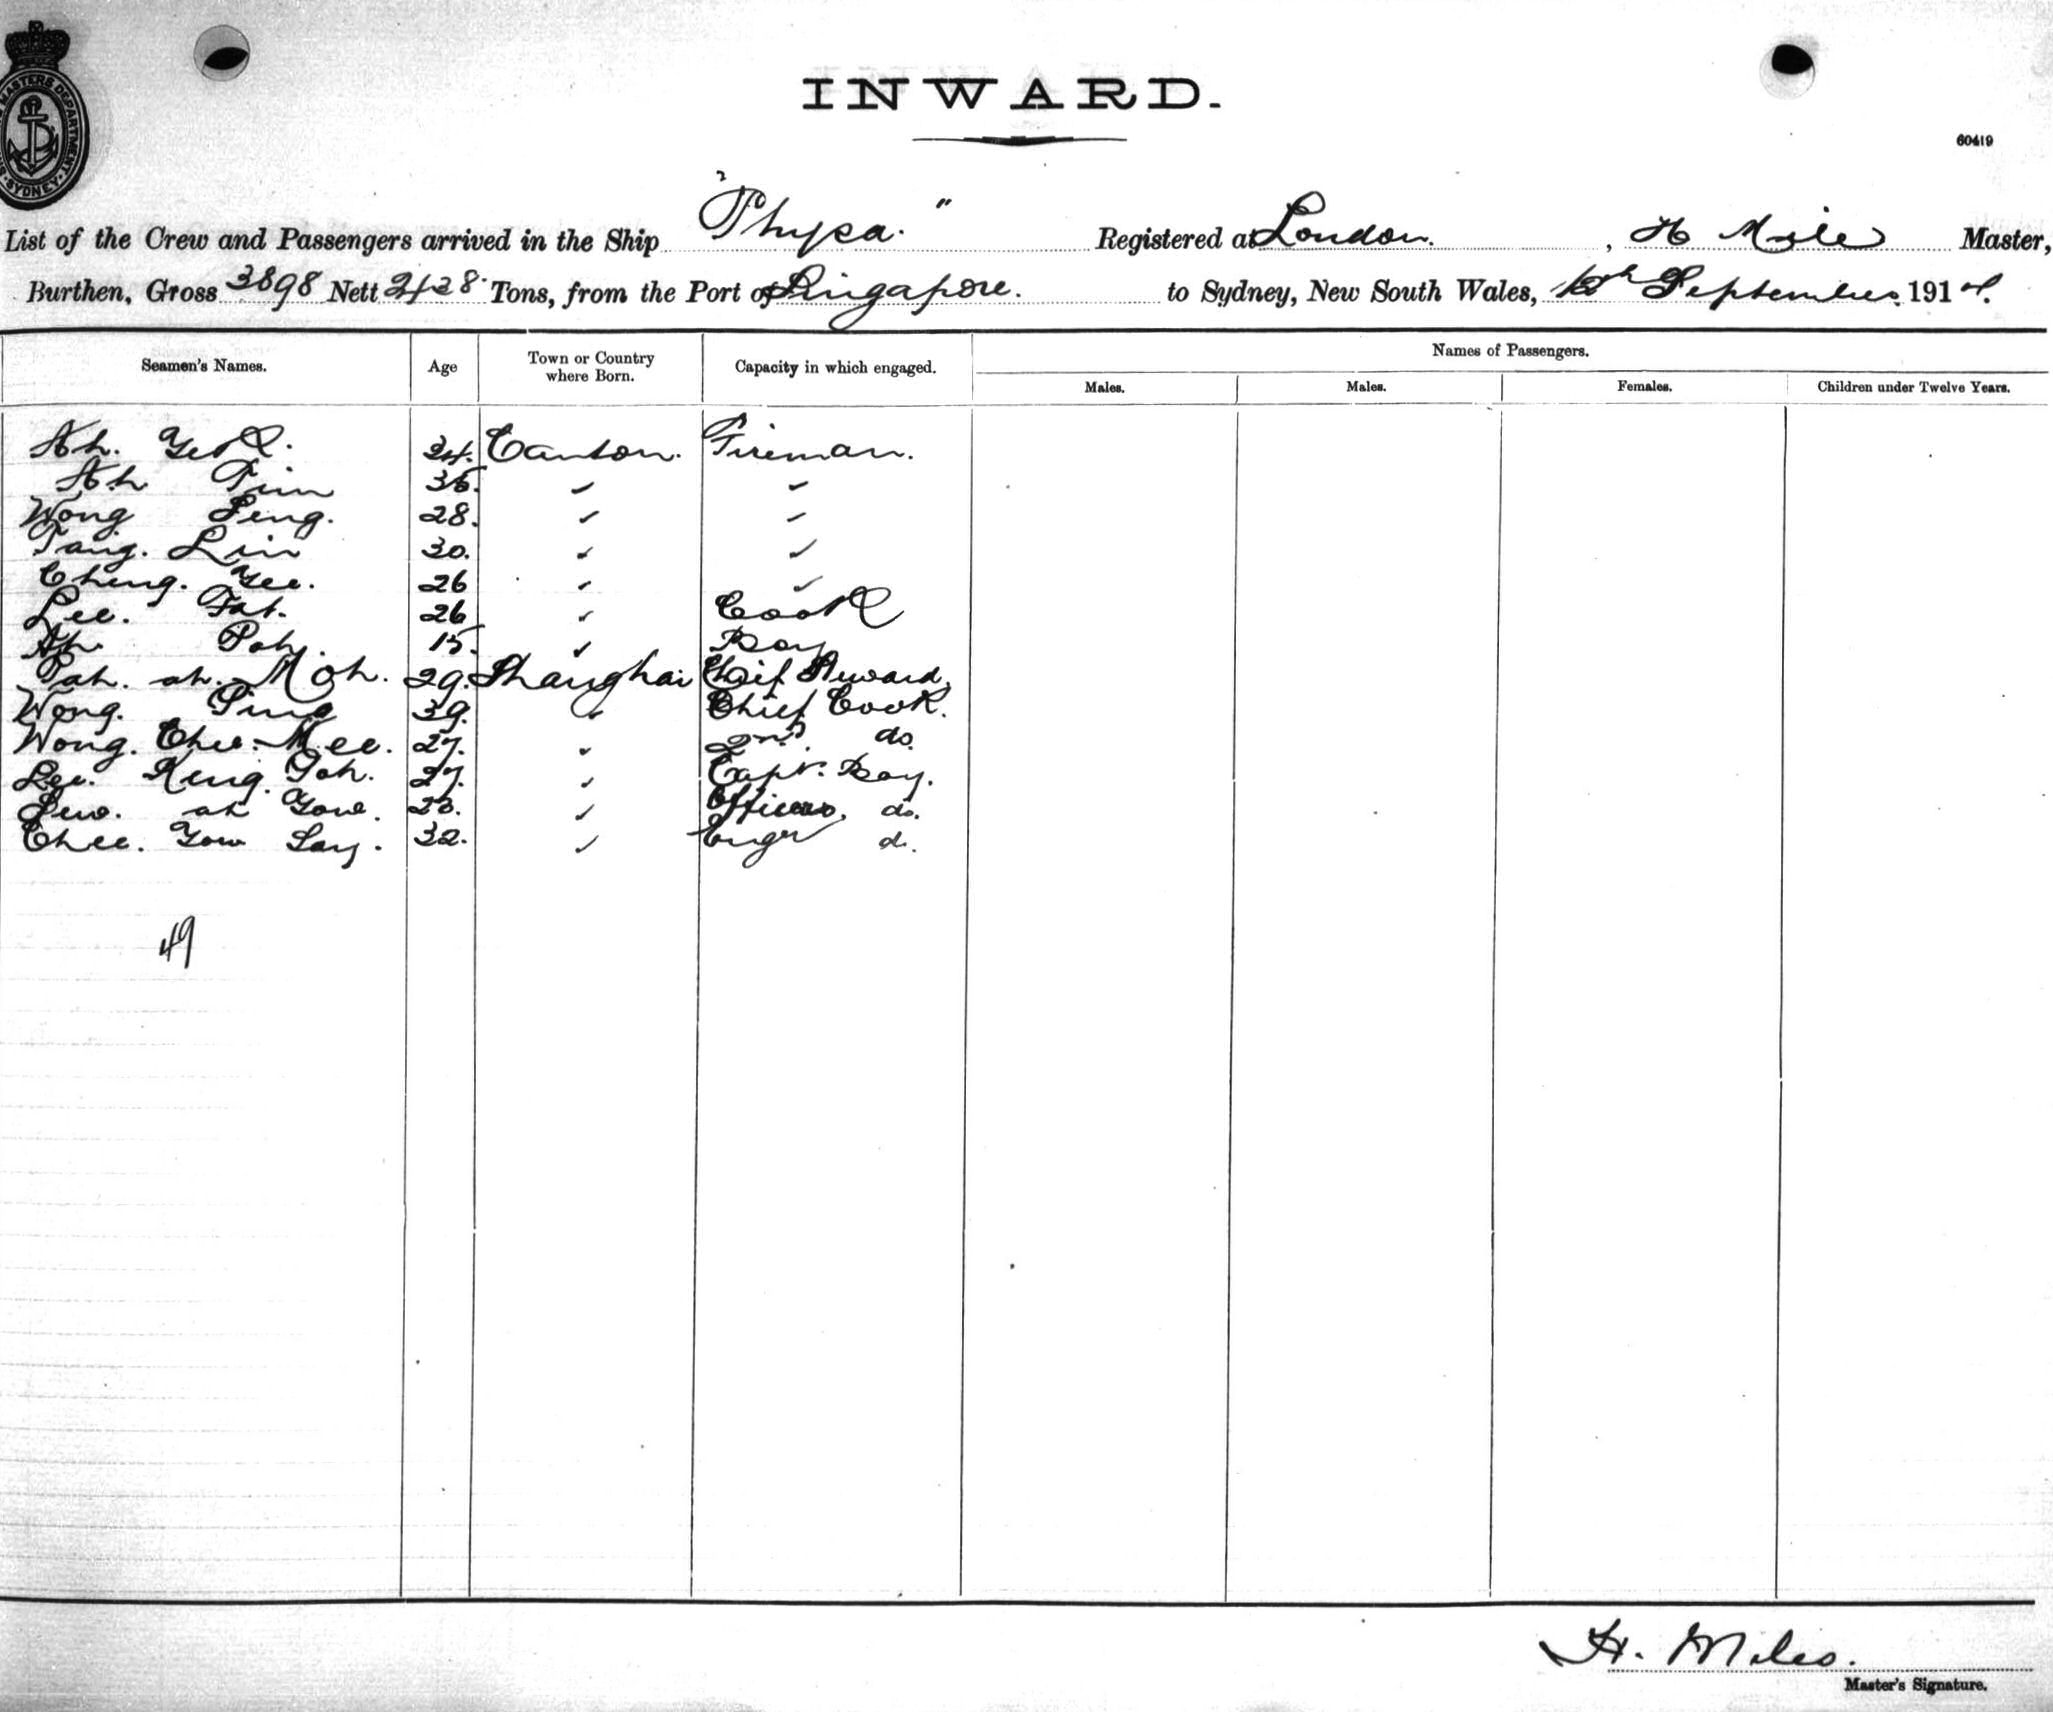 MASTERS DEPARTMENT
SYDNEY
INWARD.
60419
List of the Crew and Passengers arrived in the Ship "Physa." Registered at London. , H Mile Master,
Burthen, Gross 3898 Nett 2428 Tons, from the Port of Singapore. to Sydney, New South Wales, September 1914.
Seamen's Names. Age Town or Country where Born. Capacity in which engaged. Names of Passengers.
Males. Males. Females. Children under Twelve Years.
Ah. 34. Canton. Fireman.
Ah Tim 35. ✓ ✓
Wong Seng. 28. ✓ ✓
Tang. Lin 30. ✓ ✓
Cheng. Yee. 26 ✓ ✓
Lee. Fat. 26 ✓ Cook
Ah Poh. 15. ✓ Boy
Pah. ah. Moh. 29. Shanghai Chief Steward,
Wong. Ping 39. ✓ Chief Cook.
Wong. Chee. Mee. 27. ✓ 2nd. do.
Lee. King. Foh. 27. ✓ Capt. Boy.
ah Yowe. 23. ✓ Officers. do.
Chee. Yow Say. 32. ✓ Engr d.
49
H. Miles.
Master's Signature.